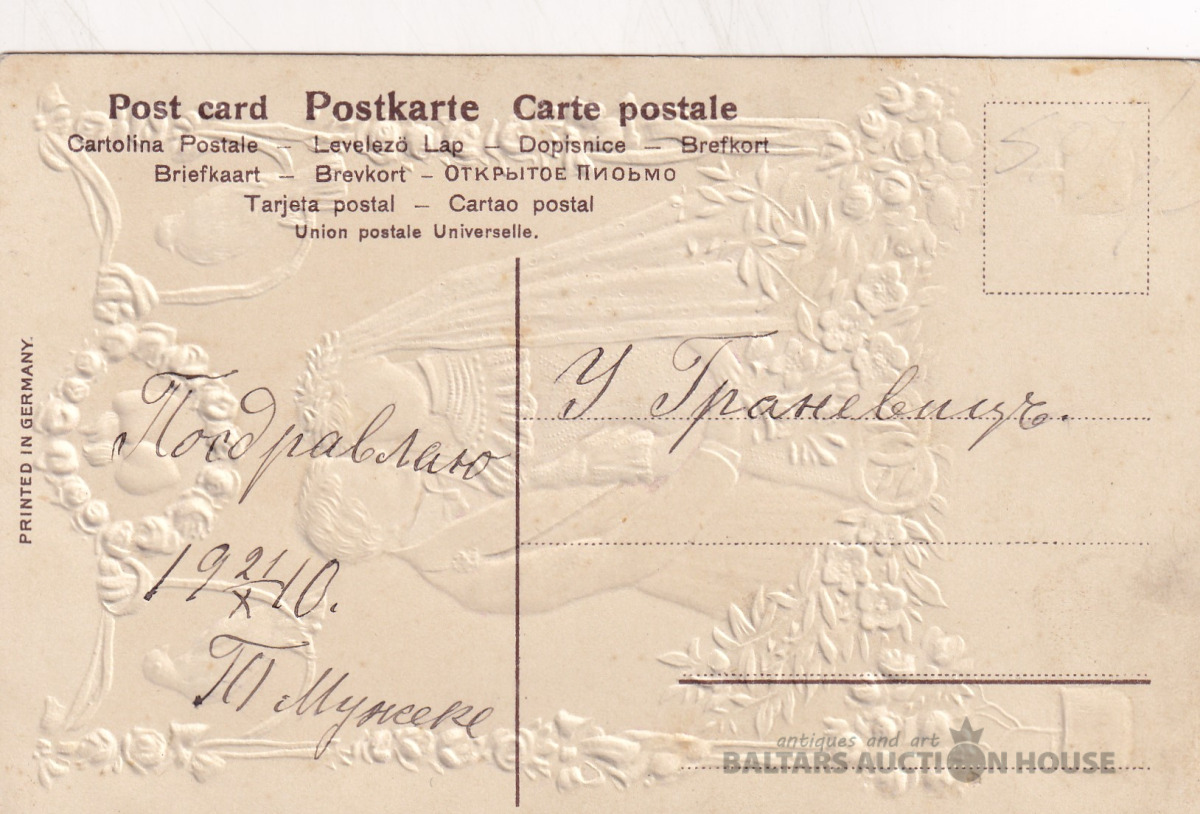 Post card Postkarte Carte postale
Cartolina Postale — Levelezö Lap — Dopisnice — Brefkort
Briefkaart — Brevkort — ОТКРЫТОЕ ПИСЬМО
Tarjeta postal — Cartao postal
Union postale Universelle.
PRINTED IN GERMANY.
У Граневицъ.
Поздравлаю
19 21/X 10.
Мужеке
antiques and art
BALTARS AUCTION HOUSE